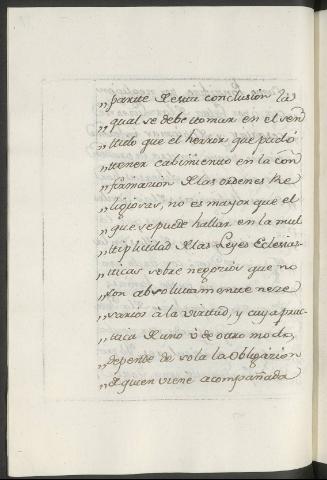 „parte de esta conclusion la
„qual se debe tomar en el sen
„tido que el herror, que pudo
„tener cabimiento en la con
„firmazion de las ordenes Re
„ligiosas, no es mayor que el
„que se puede hallar en la mul
„tiplicidad de las Leyes Eclesias-
„ticas sobre negozios que no
„son absolutamente neze
„sarios à la virtud, y cuya prac
„tica de uno ò de otro modo,
„depende de sola la Obligazion
„de quien viene acompañada